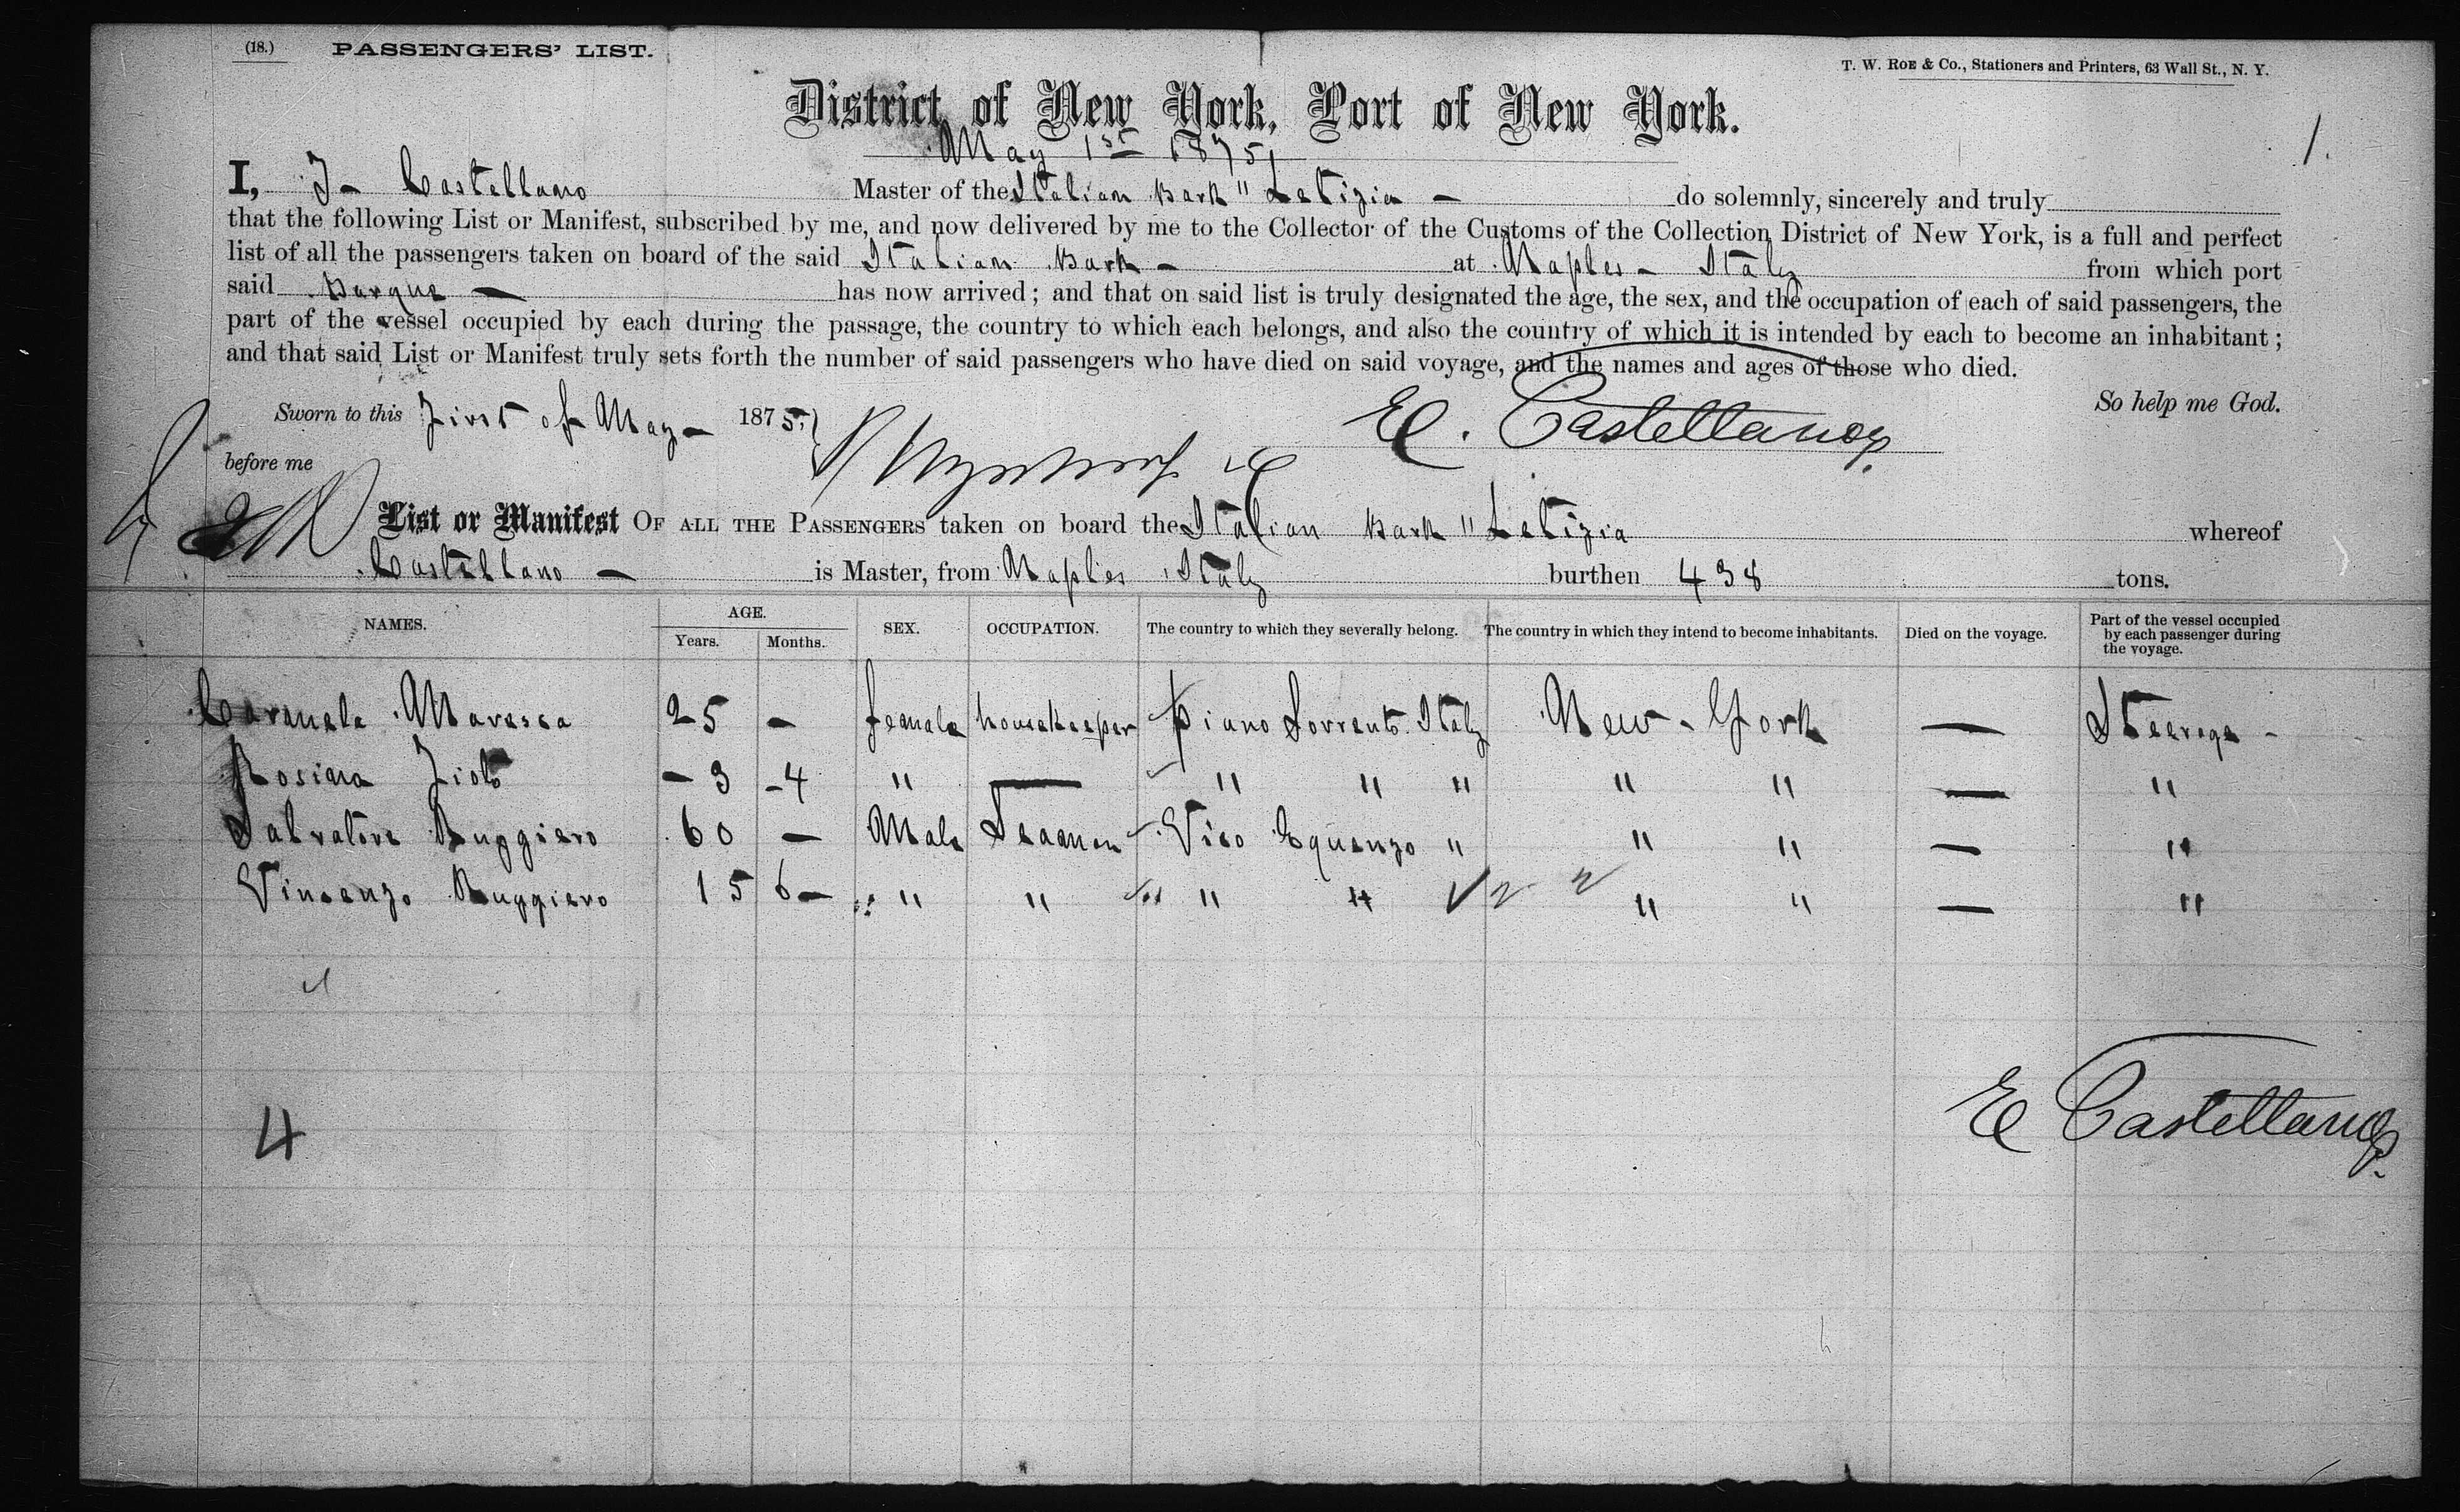 (18.) PASSENGERS' LIST.
T. W. ROE & Co., Stationers and Printers, 63 Wall St., N. Y.
District of New York, Port of New York.
May 1st 1875
1.
I, J- Castellano Master of the Italian Bark "Letizia - do solemnly, sincerely and truly
that the following List or Manifest, subscribed by me, and now delivered by me to the Collector of the Customs of the Collection District of New York, is a full and perfect
list of all the passengers taken on board of the said Italian Bark - at Naples - Italy from which port
said Barque - has now arrived; and that on said list is truly designated the age, the sex, and the occupation of each of said passengers, the
part of the vessel occupied by each during the passage, the country to which each belongs, and also the country of which it is intended by each to become an inhabitant;
and that said List or Manifest truly sets forth the number of said passengers who have died on said voyage, and the names and ages of those who died.
So help me God.
Sworn to this First of May - 1875, E. Castellano
before me
List or Manifest OF ALL THE PASSENGERS taken on board the Italian Bark "Letizia whereof
Castellano - is Master, from Naples Italy burthen 438 tons.
NAMES. AGE. Years. Months. SEX. OCCUPATION. The country to which they severally belong. The country in which they intend to become inhabitants. Died on the voyage. Part of the vessel occupied by each passenger during the voyage.
Carmela Maresca 25 - female housekeeper Piano Sorrento Italy New-York — Steerage -
Rosina - 3 - 4 " — " " " " " — "
Salvatore Ruggiero 60 - Male Seaman Vico Equenzo " " " — "
Vincenzo Ruggiero 15 6 - " " " " " " — "
E Castellano
4